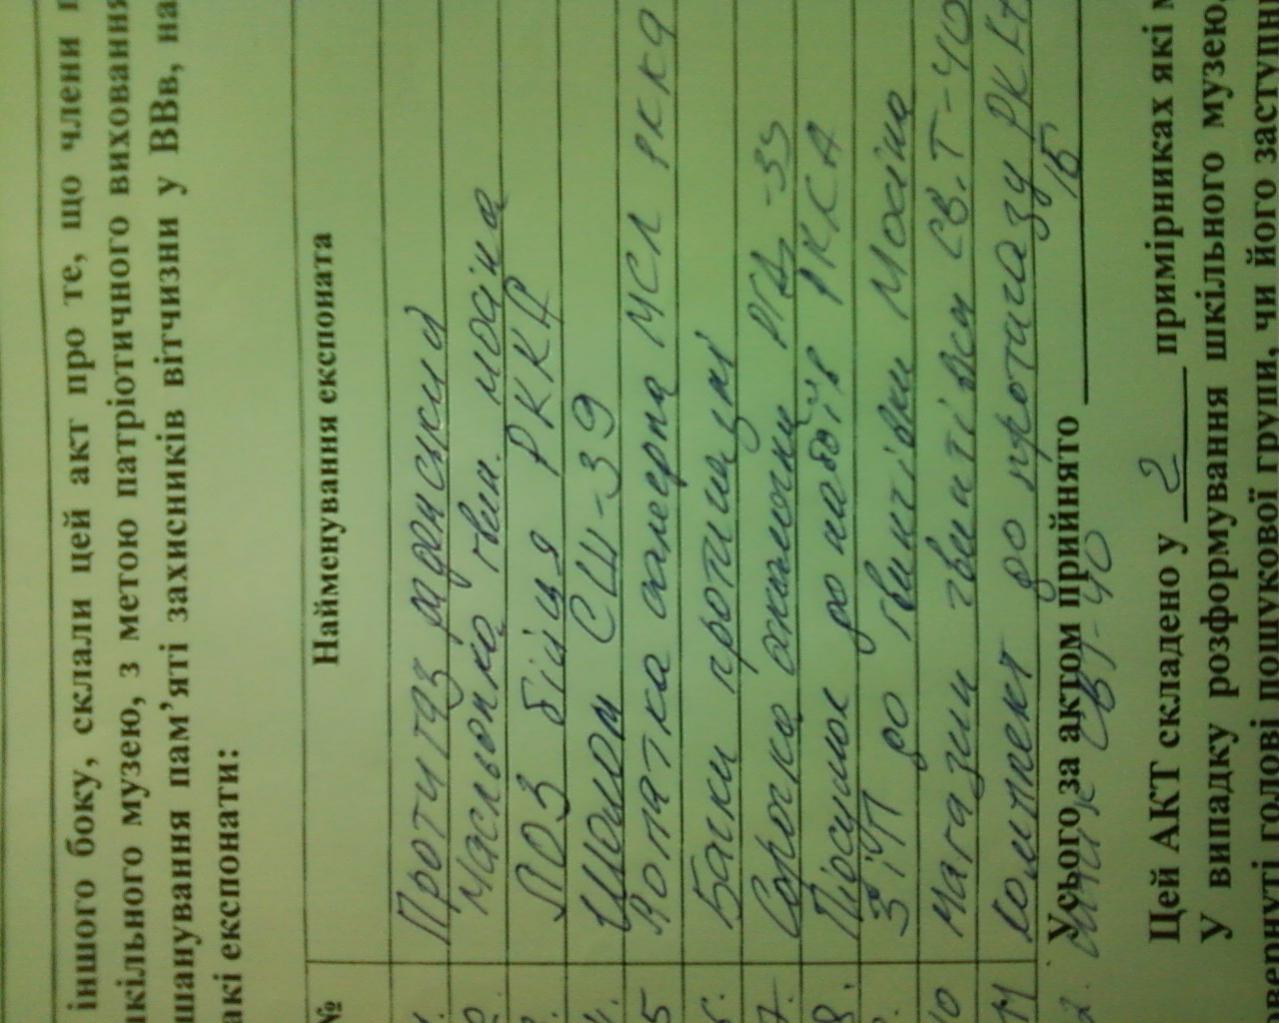 іншого боку, склали цей акт про те, що члени
шкільного музею, з метою патріотичного виховання
вшанування пам’яті захисників вітчизни у ВВв, на
акі експонати:
№ Найменування експоната
1. Протигаз радянський
2. Масльонка гвин. мосіна
3. ПОЗ бійця РККА
4. Шолом СШ-39
5 Лопатка саперна МСЛ РККА
6. Бачки протиг
7. Сорочка осколочна РГД-33
8. Підсумок до набоїв РККА
9. ЗіП до гвинтівки Мосіна
10 Магазин гвинтівки СВ.Т-40
11 Комплект до протигазу РККА
Усього за актом прийнято 15
12. СВТ-40
Цей АКТ складено у 2 примірниках які
У випадку розформування шкільного музею,
повернуті голові пошукової групи, чи його заступни